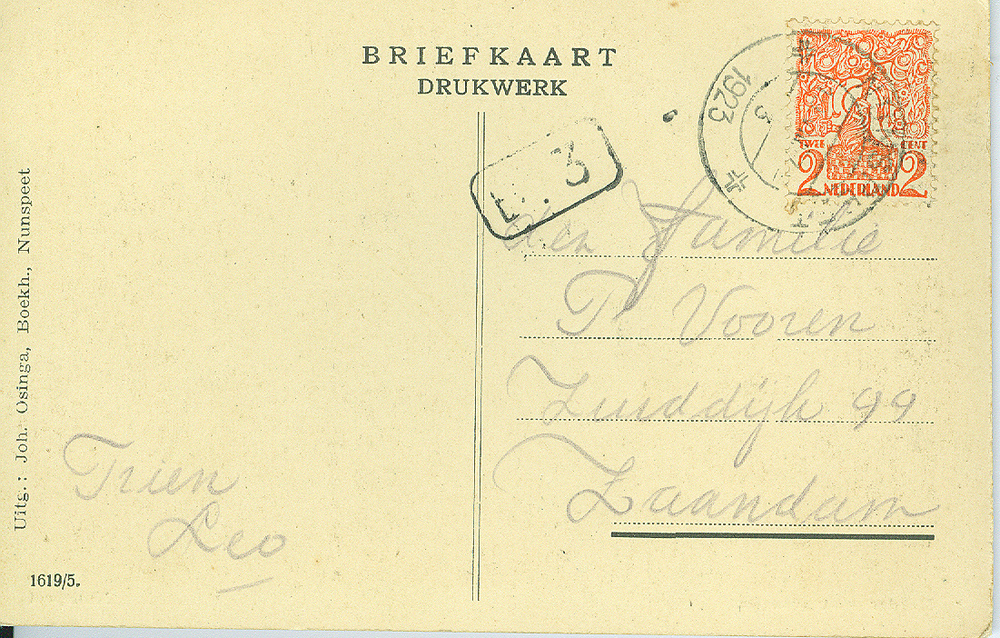 BRIEFKAART
DRUKWERK
1923
3
TWEE CENT
2 NEDERLAND 2
3
den Familie
P Vooren
Zuiddijk 99
Zaandam
Trien
Leo
Uitg.: Joh. Osinga, Boekh., Nunspeet
1619/5.